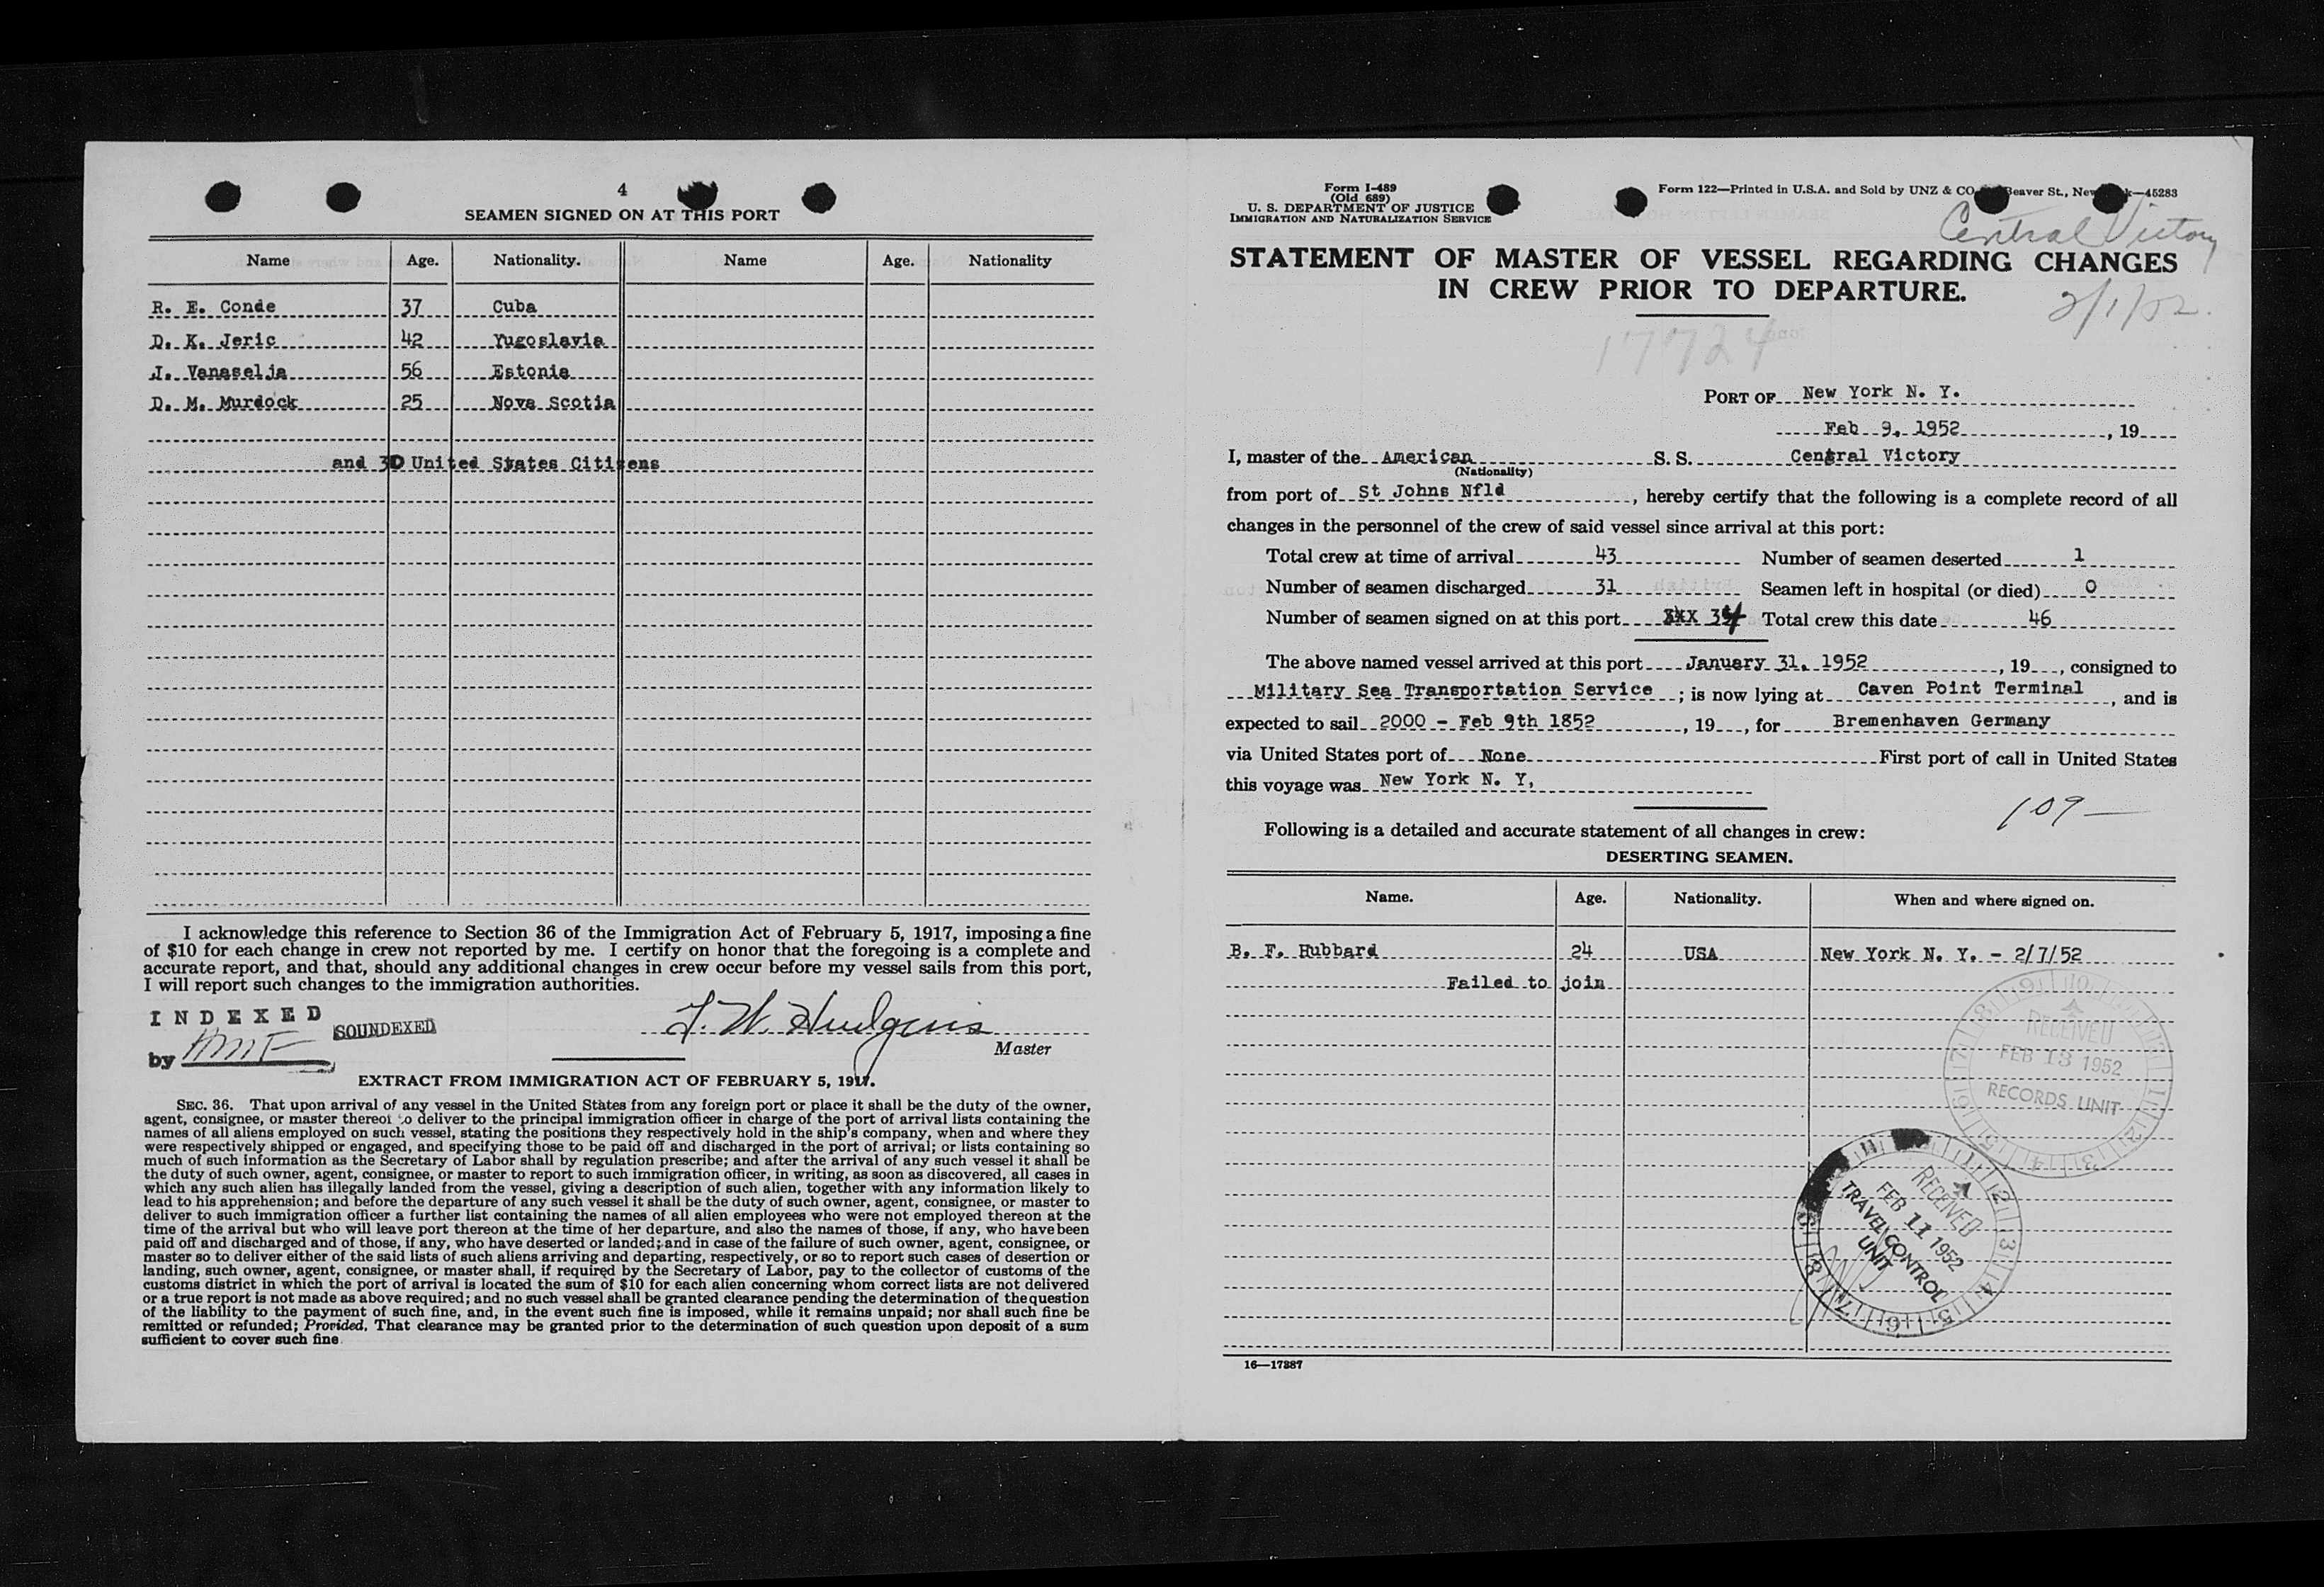 4
SEAMEN SIGNED ON AT THIS PORT
Name Age. Nationality. Name Age. Nationality
R. E. Conde 37 Cuba
D. K. Jeric 42 Yugoslavia
J. Vanaselja 56 Estonia
D. M. Murdock 25 Nova Scotia
and 30 United States Citizens
I acknowledge this reference to Section 36 of the Immigration Act of February 5, 1917, imposing a fine
of $10 for each change in crew not reported by me. I certify on honor that the foregoing is a complete and
accurate report, and that, should any additional changes in crew occur before my vessel sails from this port,
I will report such changes to the immigration authorities.
INDEXED
SOUNDEXED
by
Master
EXTRACT FROM IMMIGRATION ACT OF FEBRUARY 5, 1917.
SEC. 36. That upon arrival of any vessel in the United States from any foreign port or place it shall be the duty of the owner,
agent, consignee, or master thereof to deliver to the principal immigration officer in charge of the port of arrival lists containing the
names of all aliens employed on such vessel, stating the positions they respectively hold in the ship's company, when and where they
were respectively shipped or engaged, and specifying those to be paid off and discharged in the port of arrival; or lists containing so
much of such information as the Secretary of Labor shall by regulation prescribe; and after the arrival of any such vessel it shall be
the duty of such owner, agent, consignee, or master to report to such immigration officer, in writing, as soon as discovered, all cases in
which any such alien has illegally landed from the vessel, giving a description of such alien, together with any information likely to
lead to his apprehension; and before the departure of any such vessel it shall be the duty of such owner, agent, consignee, or master to
deliver to such immigration officer a further list containing the names of all alien employees who were not employed thereon at the
time of the arrival but who will leave port thereon at the time of her departure, and also the names of those, if any, who have been
paid off and discharged and of those, if any, who have deserted or landed; and in case of the failure of such owner, agent, consignee, or
master so to deliver either of the said lists of such aliens arriving and departing, respectively, or so to report such cases of desertion or
landing, such owner, agent, consignee, or master shall, if required by the Secretary of Labor, pay to the collector of customs of the
customs district in which the port of arrival is located the sum of $10 for each alien concerning whom correct lists are not delivered
or a true report is not made as above required; and no such vessel shall be granted clearance pending the determination of the question
of the liability to the payment of such fine, and, in the event such fine is imposed, while it remains unpaid; nor shall such fine be
remitted or refunded; Provided, That clearance may be granted prior to the determination of such question upon deposit of a sum
sufficient to cover such fine
Form I-489
(Old 689)
U. S. DEPARTMENT OF JUSTICE
IMMIGRATION AND NATURALIZATION SERVICE
Form 122—Printed in U.S.A. and Sold by UNZ & CO Beaver St., New k—45283
Central Victory
STATEMENT OF MASTER OF VESSEL REGARDING CHANGES
IN CREW PRIOR TO DEPARTURE.
2/1/52.
17724
PORT OF New York N. Y.
Feb 9, 1952, 19
I, master of the American S. S. Central Victory
(Nationality)
from port of St Johns Nfld, hereby certify that the following is a complete record of all
changes in the personnel of the crew of said vessel since arrival at this port:
Total crew at time of arrival 43 Number of seamen deserted 1
Number of seamen discharged 31 Seamen left in hospital (or died) 0
Number of seamen signed on at this port 34 Total crew this date 46
The above named vessel arrived at this port January 31, 1952, 19, consigned to
Military Sea Transportation Service; is now lying at Caven Point Terminal, and is
expected to sail 2000 - Feb 9th 1852, 19, for Bremenhaven Germany
via United States port of None First port of call in United States
this voyage was New York N. Y,
109—
Following is a detailed and accurate statement of all changes in crew:
DESERTING SEAMEN.
Name. Age. Nationality. When and where signed on.
B. F. Hubbard 24 USA New York N. Y. - 2/7/52
Failed to join
RECEIVED
FEB 13 1952
RECORDS UNIT
RECEIVED
FEB 11 1952
TRAVEL CONTROL
UNIT
16—17387